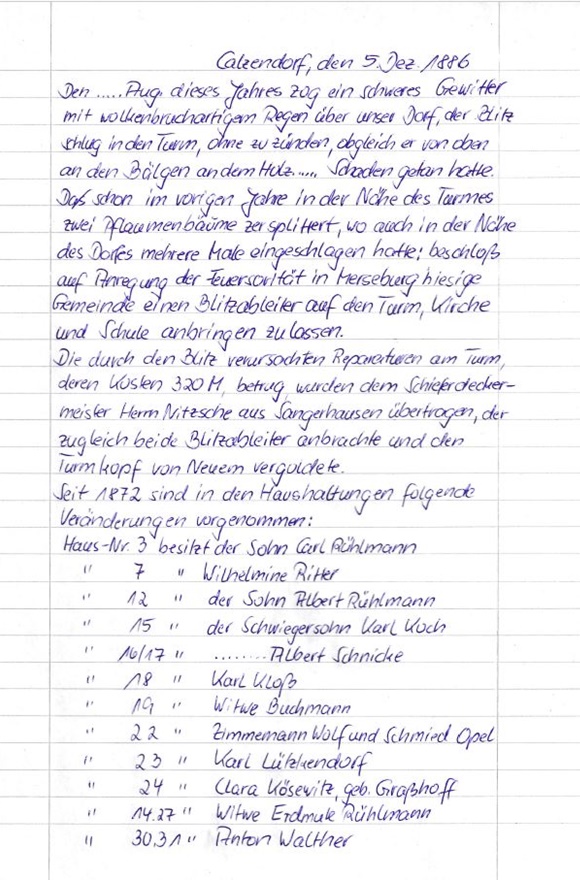 Calzendorf, den 5. Dez. 1886
Den ..... Aug. dieses Jahres zog ein schweres Gewitter
mit wolkenbruchartigem Regen über unser Dorf, der Blitz
schlug in den Turm, ohne zu zünden, obgleich er von oben
an den Bälgen an dem Holz..... Schaden getan hatte.
Daß schon im vorigen Jahre in der Nähe des Turmes
zwei Pflaumenbäume zersplittert, wo auch in der Nähe
des Dorfes mehrere Male eingeschlagen hatte; beschloß
auf Anregung der Feuersorität in Merseburg hiesige
Gemeinde einen Blitzableiter auf den Turm, Kirche
und Schule anbringen zu lassen.
Die durch den Blitz verursachten Reparaturen am Turm,
deren Kosten 320 M, betrug, wurden dem Schieferdecker-
meister Herrn Nitzsche aus Sangerhausen übertragen, der
zugleich beide Blitzableiter anbrachte und den
Turmkopf von Neuem vergoldete.
Seit 1872 sind in den Haushaltungen folgende
Veränderungen vorgenommen:
Haus-Nr. 3 besitzt der Sohn Carl Rühlmann
" 7 " Wilhelmine Ritter
" 12 " der Sohn Albert Rühlmann
" 15 " der Schwiegersohn Karl Koch
" 16/17 " ........ Albert Schnicke
" 18 " Karl Kloß
" 19 " Witwe Buchmann
" 22 " Zimmemann Wolf und Schmied Opel
" 23 " Karl Lützkendorf
" 24 " Clara Kösewitz, geb. Graßhoff
" 14.27 " Witwe Erdmute Rühlmann
" 30,31 " Anton Walther